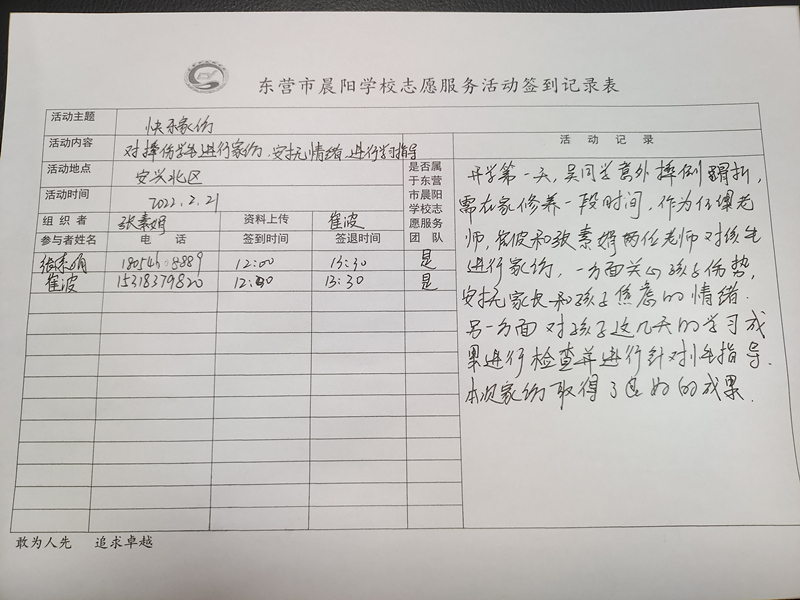 东营市晨阳学校志愿服务活动签到记录表
活动主题 快乐家访
活动内容 对摔伤学生进行家访,安抚情绪,进行学习指导
活动地点 安兴北区
活动时间 2022.2.21
组织者 张素娟 资料上传 崔波
是否属于东营市晨阳学校志愿服务团队
参与者姓名 电话 签到时间 签退时间
张素娟 12:00 13:30 是
崔波 15318379820 12:00 13:30 是
活动记录
开学第一天,吴同学意外摔倒骨折,
需在家修养一段时间,作为任课老
师,崔波和张素娟两位老师对该生
进行家访,一方面关心孩子伤势,
安抚家长和孩子焦虑的情绪.
另一方面对孩子这几天的学习成
果进行检查并进行针对性指导.
本次家访取得了良好的成果.
敢为人先 追求卓越